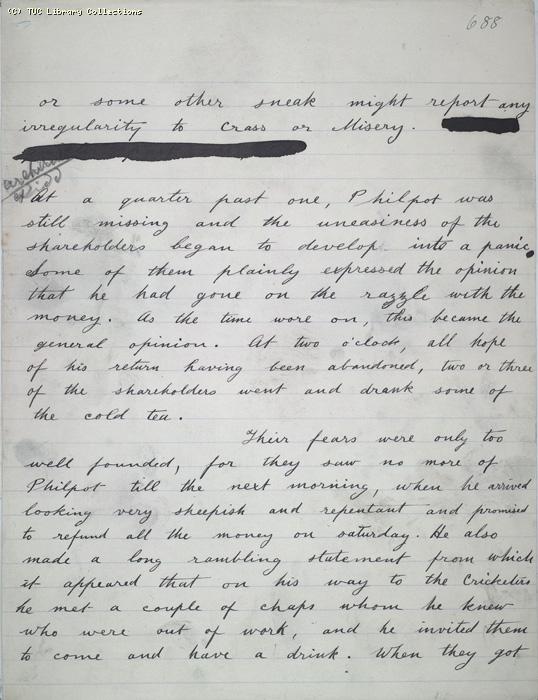 (C) TUC Library Collections
688
or some other sneak might report any
irregularity to Crass or Misery.
At a quarter past one, Philpot was
still missing and the uneasiness of the
shareholders began to develop into a panic.
Some of them plainly expressed the opinion
that he had gone on the razzle with the
money. As the time wore on, this became the
general opinion. At two o'clock, all hope
of his return having been abandoned, two or three
of the shareholders went and drank some of
the cold tea.
Their fears were only too
well founded, for they saw no more of
Philpot till the next morning, when he arrived
looking very sheepish and repentant and promised
to refund all the money on saturday. He also
made a long rambling statement from which
it appeared that on his way to the Cricketers
he met a couple of chaps whom he knew
who were out of work, and he invited them
to come and have a drink. When they got